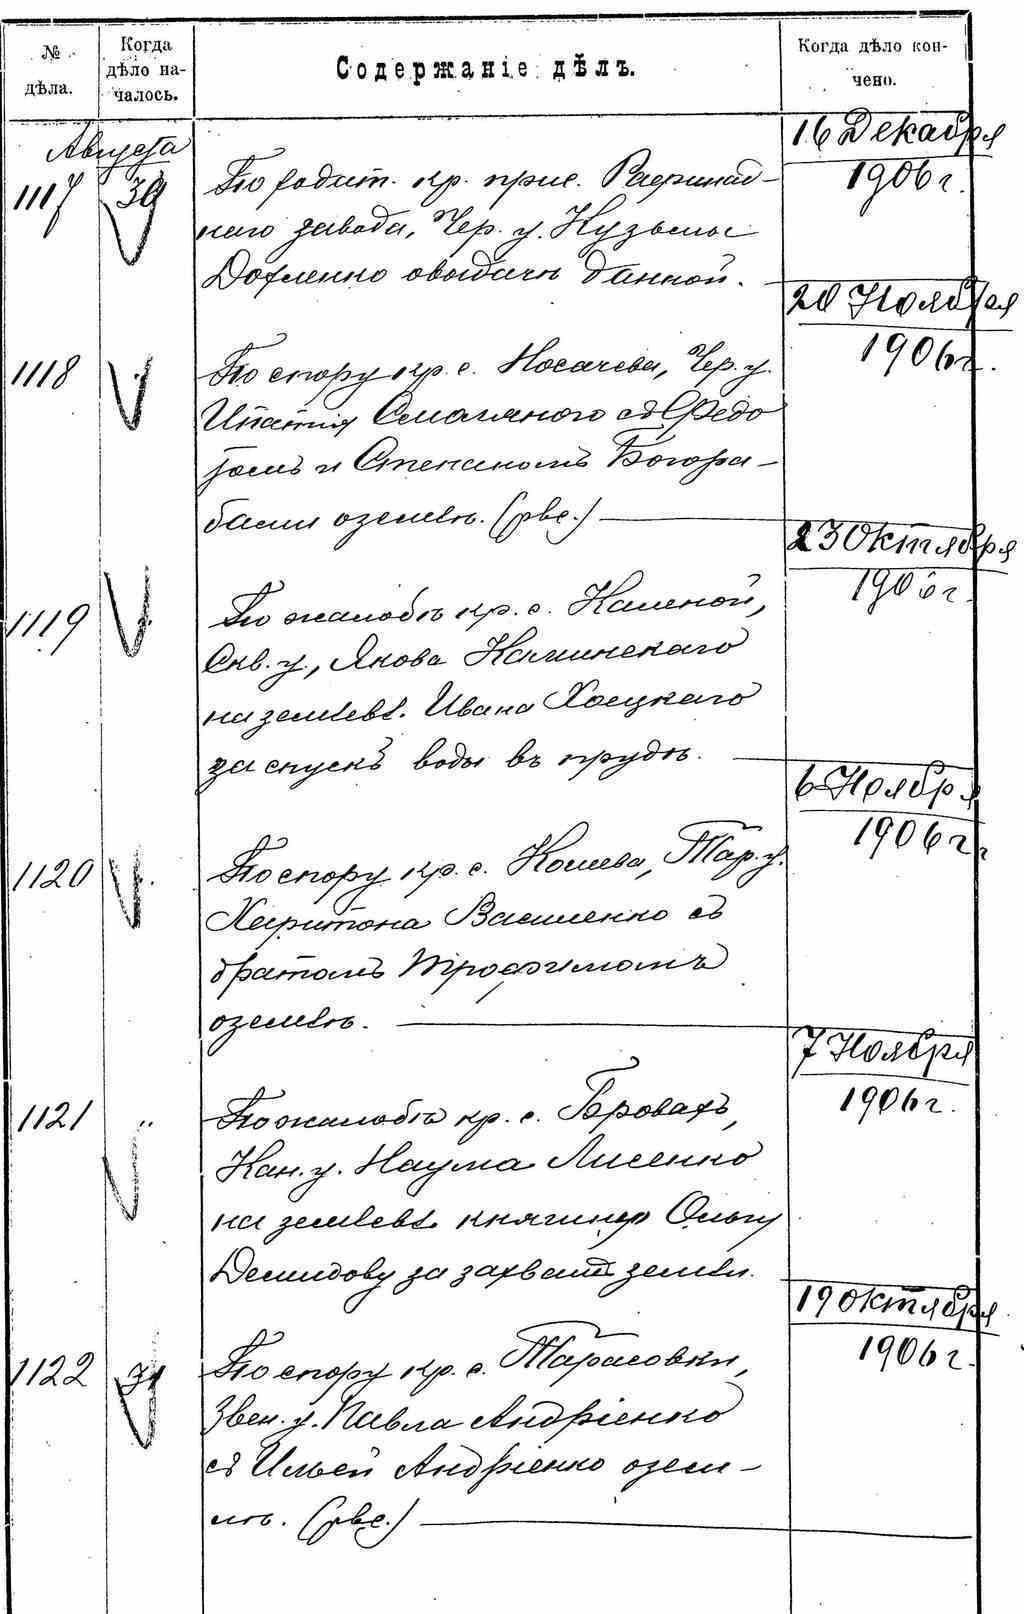 № дѣла.
Когда дѣло на-
чалось.
Содержаніе дѣлъ.
Когда дѣло кон-
чено.
Августа
1117
30
По ходат. кр. прис.
наго завода, Чер. у. Кузьмы
Дохленко о выдачѣ данной.
16 Декабря
1906 г.
1118
"
По спору кр. с. Носачева, Чер. у.
Ипатія Смаляного съ Федо
томъ и Степаномъ Богора-
бами о землѣ. (рве.)
20 Ноября
1906 г.
1119
По жалобѣ кр. с. Каменой,
Скв. у., Якова Каминскаго
на землевл. Ивана Хоецкаго
за спускъ воды въ прудѣ.
23 Октября
1906 г.
1120
"
По спору кр. с. Кошева, Тар. у.
Харитона Василенко съ
братомъ Трофимомъ
о землѣ.
6 Ноября
1906 г.
1121
"
По жалобѣ кр. с. Бровахъ,
Кан. у. Наума Лисенко
на землевл. княгиню Ольгу
Демидову за захватъ земли.
7 Ноября
1906 г.
1122
31
По спору кр. с. Тарасовки,
Звен. у. Павла Андріенко
съ Ильей Андріенко о зем-
лѣ. (рве.)
19 Октября
1906 г.